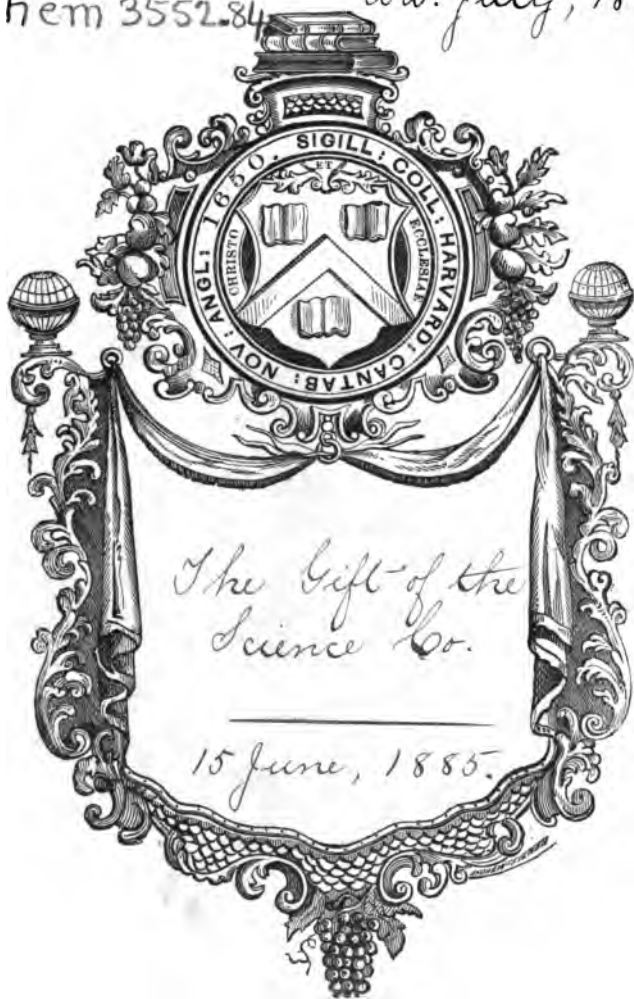 hem 3552.84
July, 18
SIGILL: COLL: HARVARD: CANTAB: NOV: ANGL: 1650.
ET
CHRISTO
ECCLESIAE
The Gift of the
Science Co.
15 June, 1885.